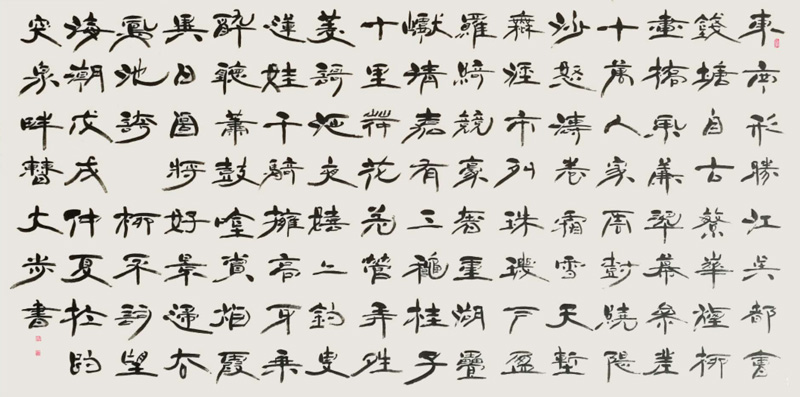 東南形勝江吳都會
錢塘自古繁華煙柳
畫橋風簾翠幕參差
十萬人家雲樹繞隄
沙怒濤卷霜雪天塹
無涯市列珠璣戶盈
羅綺競豪奢重湖疊
巘清嘉有三秋桂子
十里荷花羌管弄晴
菱歌泛夜嬉嬉釣叟
蓮娃千騎擁高牙乘
醉聽簫鼓吟賞煙霞
異日圖將好景歸去
鳳池誇 柳永詞望
海潮戊戌仲夏於趵
突泉畔大步書